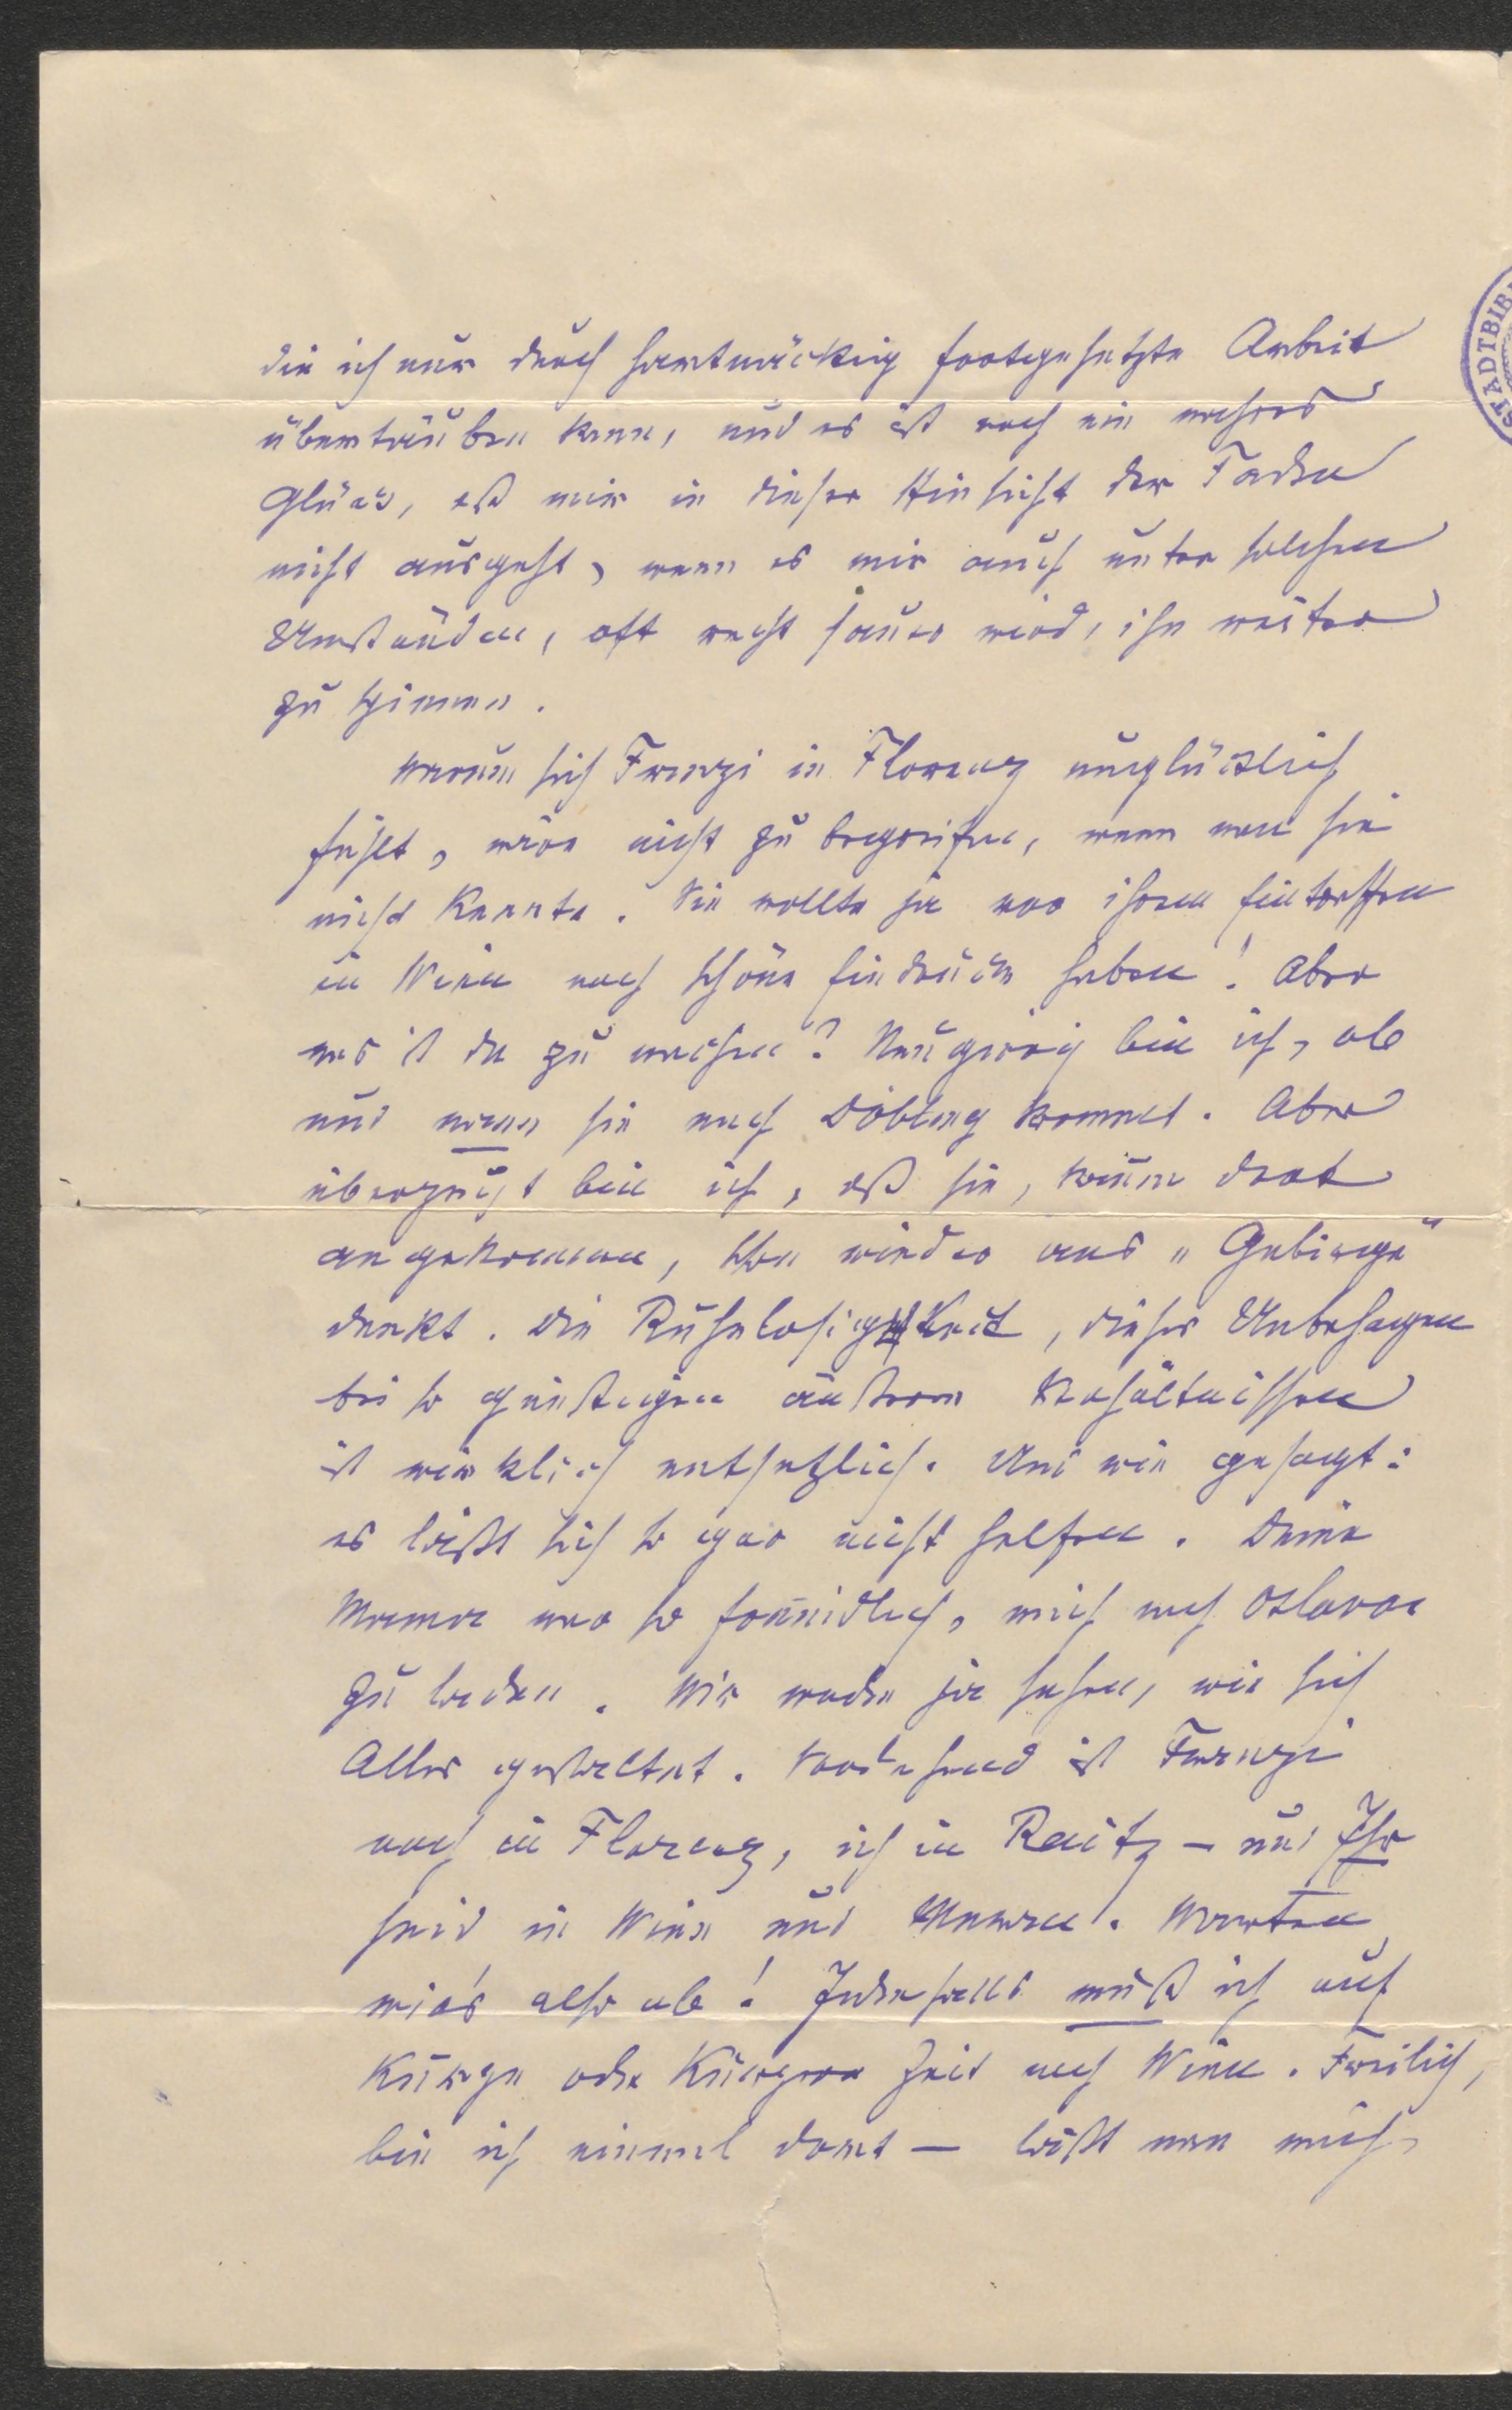 die ich nur durch hartnäckig fortgesetzte Arbeit
übertäuben kann, und es ist noch ein wahres
Glück, daß mir in dieser Hinsicht der Faden
nicht ausgeht, wenn es mir auch unter solchen
Umständen, oft recht sauer wird, ihn weiter
zu spinnen.
Warum sich Franzi in Florenz unglücklich
fühlt, wäre nicht zu begreifen, wenn man sie
nicht kannte. Sie wollte ja vor ihrem Eintreffen
in Wien noch schöne Eindrücke haben! Aber
was ist da zu machen? Neugierig bin ich, ob
und wann sie nach Döbling kommt. Aber
überzeugt bin ich, daß sie, kaum dort
angekommen, schon wieder ans „Gebirge“
denkt. Die Ruhelosigkeit, dieses Unbehagen
bei so günstigen äußeren Verhältnissen
ist wirklich entsetzlich. Und wie gesagt:
es läßt sich so gar nicht helfen. Deine
Mama war so freundlich, mich nach Oslavan
zu laden. Wir werden ja sehen, wie sich
Alles gestaltet. Vorderhand ist Franzi
noch in Florenz, ich in Raitz – und Ihr
seid in Wien und Meran. Warten
wir's also ab! Jedenfalls muß ich auf
kurze oder kürzere Zeit nach Wien. Freilich,
bin ich einmal dort – läßt man mich
STADTBIB